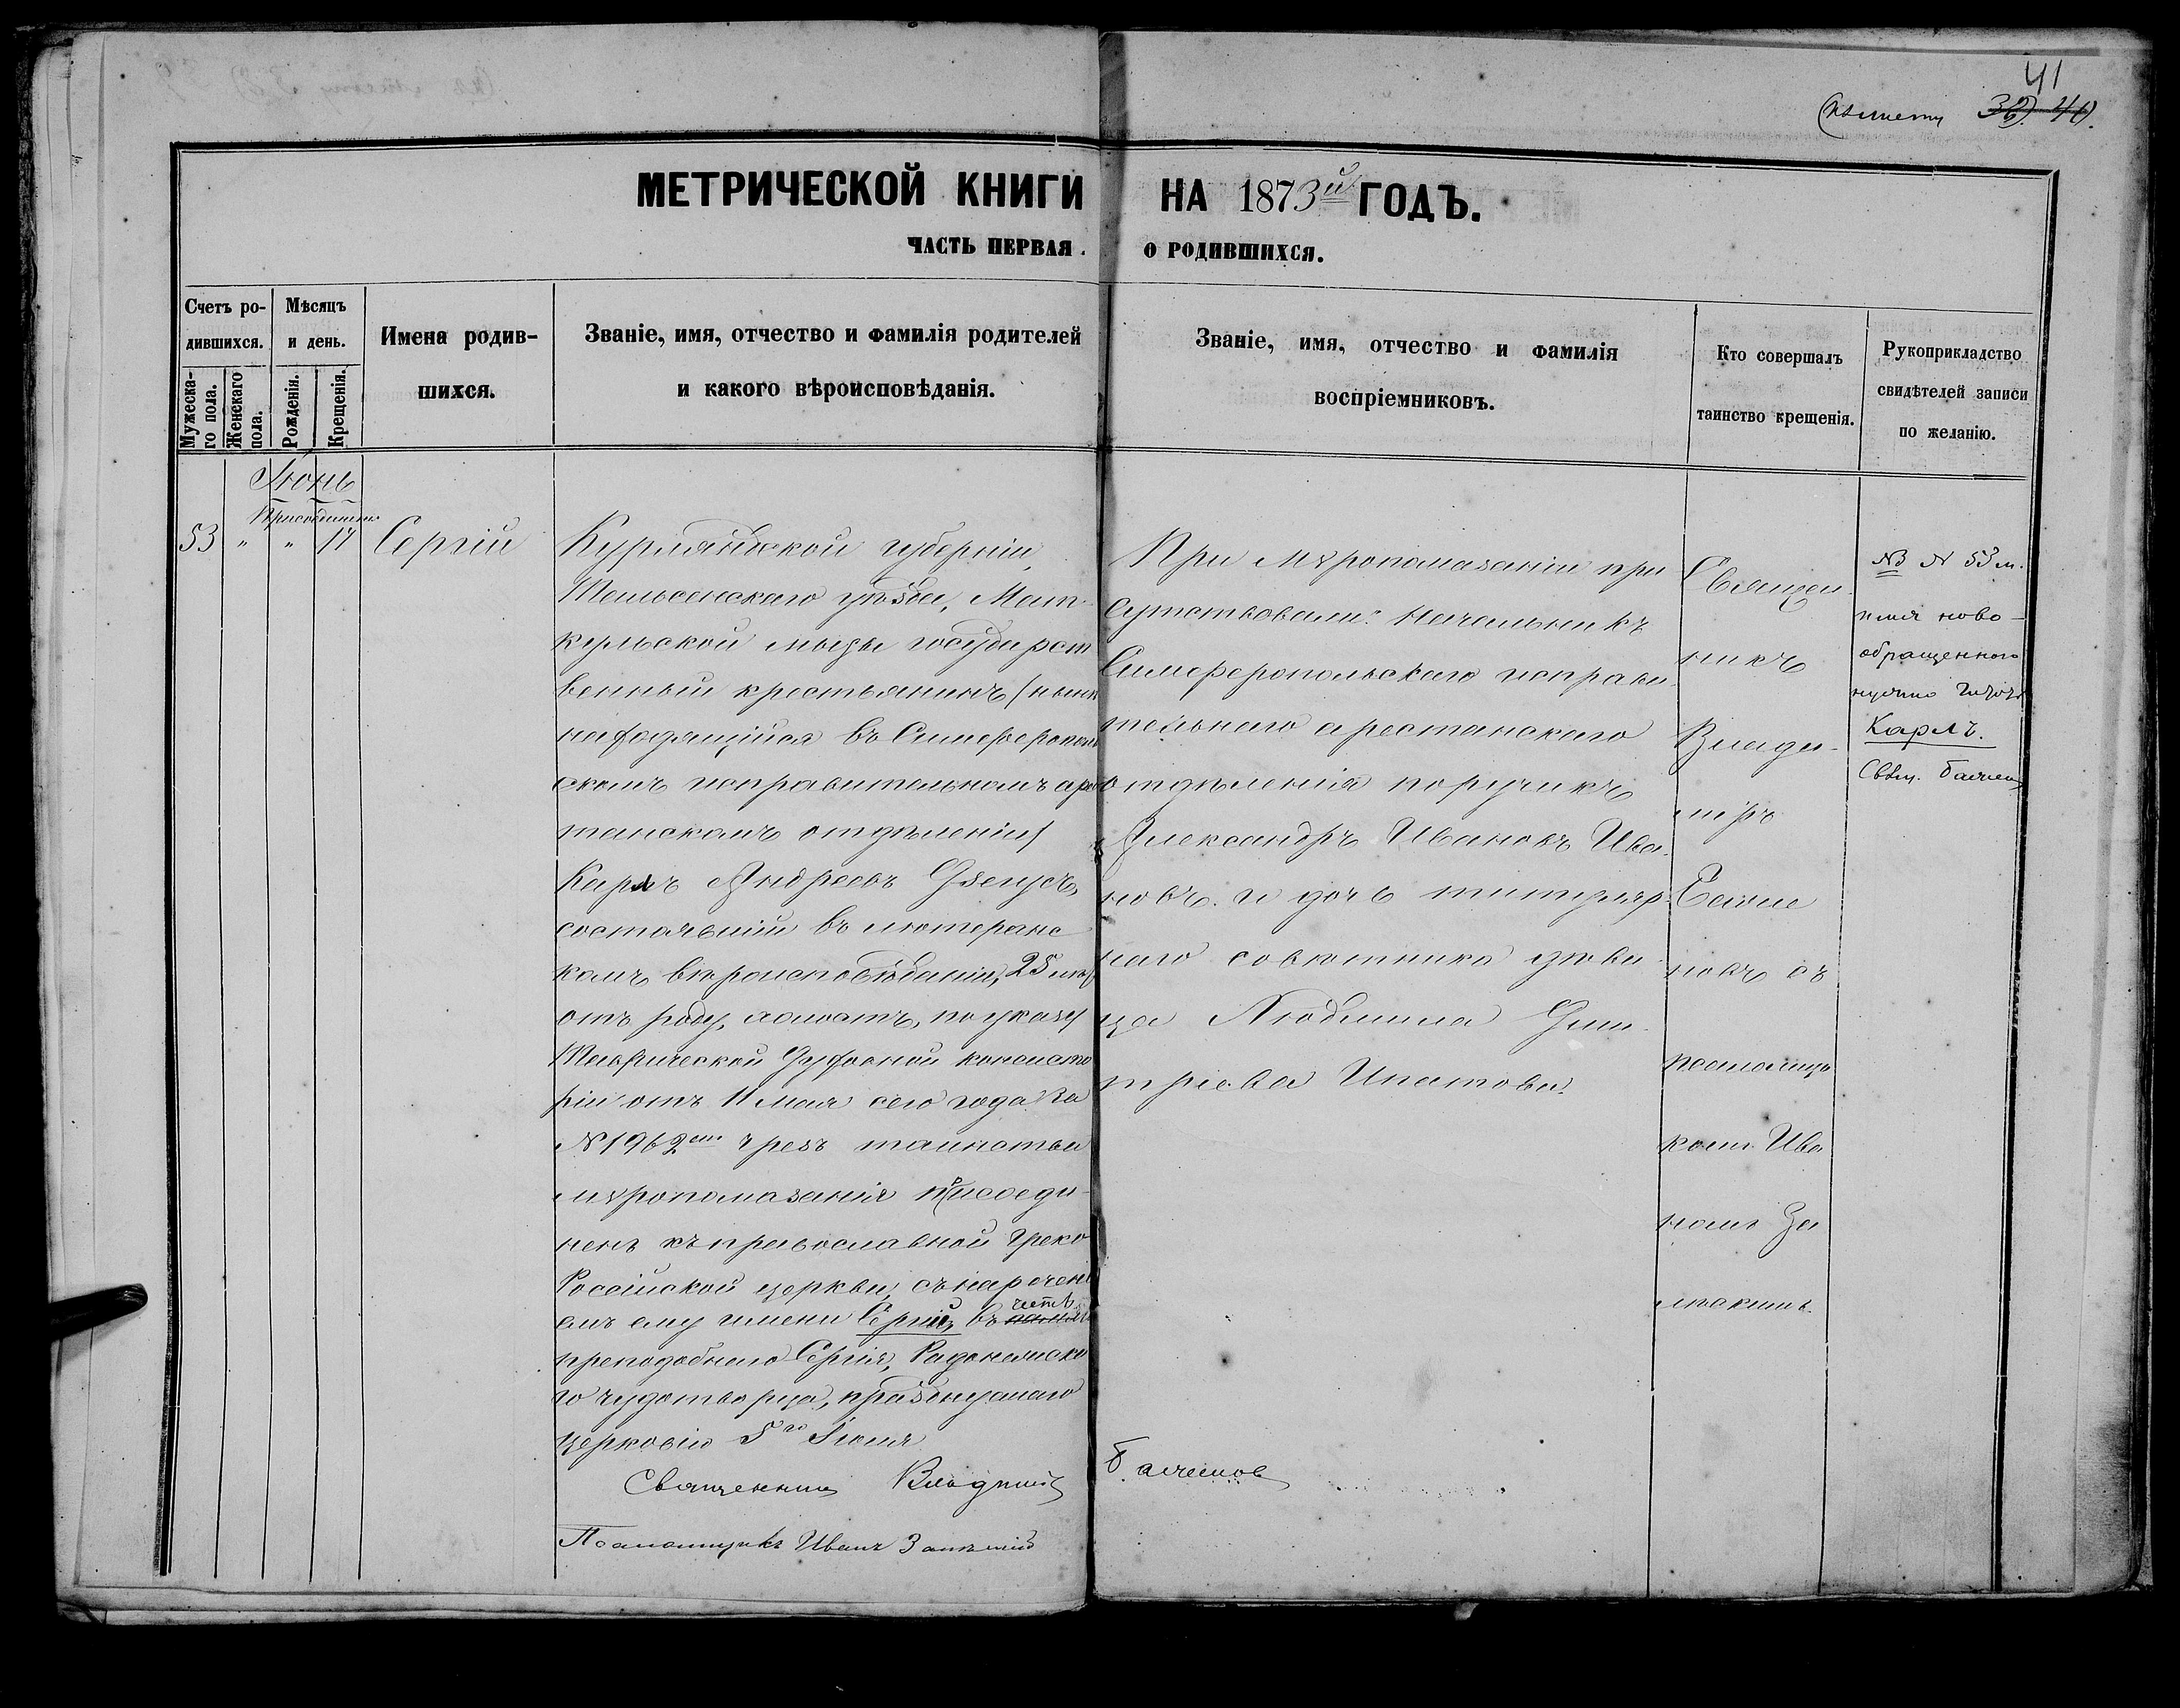 41
МЕТРИЧЕСКОЙ КНИГИ НА 1873й ГОДЪ.
ЧАСТЬ ПЕРВАЯ. О РОДИВШИХСЯ.
Счетъ ро-
дившихся.
Мужеска-
го пола.
Женскаго
пола.
Мѣсяцъ
и день.
Рожденія.
Крещенія.
Имена родив-
шихся.
Званіе, имя, отчество и фамилія родителей
и какого вѣроисповѣданія.
Званіе, имя, отчество и фамилія
воспріемниковъ.
Кто совершалъ
таинство крещенія.
Рукоприкладство
свидѣтелей записи
по желанію.
Іюнь
53 " " 17
Сергій
Курляндской губерніи,
Тальсенскаго уѣзда, Мат-
кульской мызы государст
венный крестьянинъ (нынѣ
находящійся въ Симферополь
скомъ исправительномъ арес
танскомъ отдѣленіи)
Карлъ Андреевъ
состоявшій въ лютеранс
комъ вѣроисповѣданіи, 25 лѣтъ
отъ роду, холостъ, по указу
Таврической Духовной консисто
ріи отъ 11 мая сего года за
№ 1962мъ чрезъ таинство
мѵропомазанія присоеди-
ненъ къ православной Греко
Россійской церкви, съ нарече­ні
емъ ему имени Сергій, въ честь
преподобнаго Сергія, Радонежска
го чудотворца, празднуемаго
церковію 5го Іюля
Священникъ Владиміръ Баженов
Псаломщикъ Иванъ
При мѵропомазаніи при
сутствовали: начальникъ
Симферопольскаго исправи
тельнаго арестанскаго
отдѣленія поручикъ
Александръ Ивановъ Ива-
новъ и дочь титуляр
наго совѣтника дѣви
ца Людмила Дми-
тріева Ипатова.
Священ-
никъ
Влади-
міръ
Баже
новъ съ
псаломщи
комъ Ива
номъ За
NB № 53 м.
имя ново-
обращеннаго
Карлъ.
Свящ. Баженов